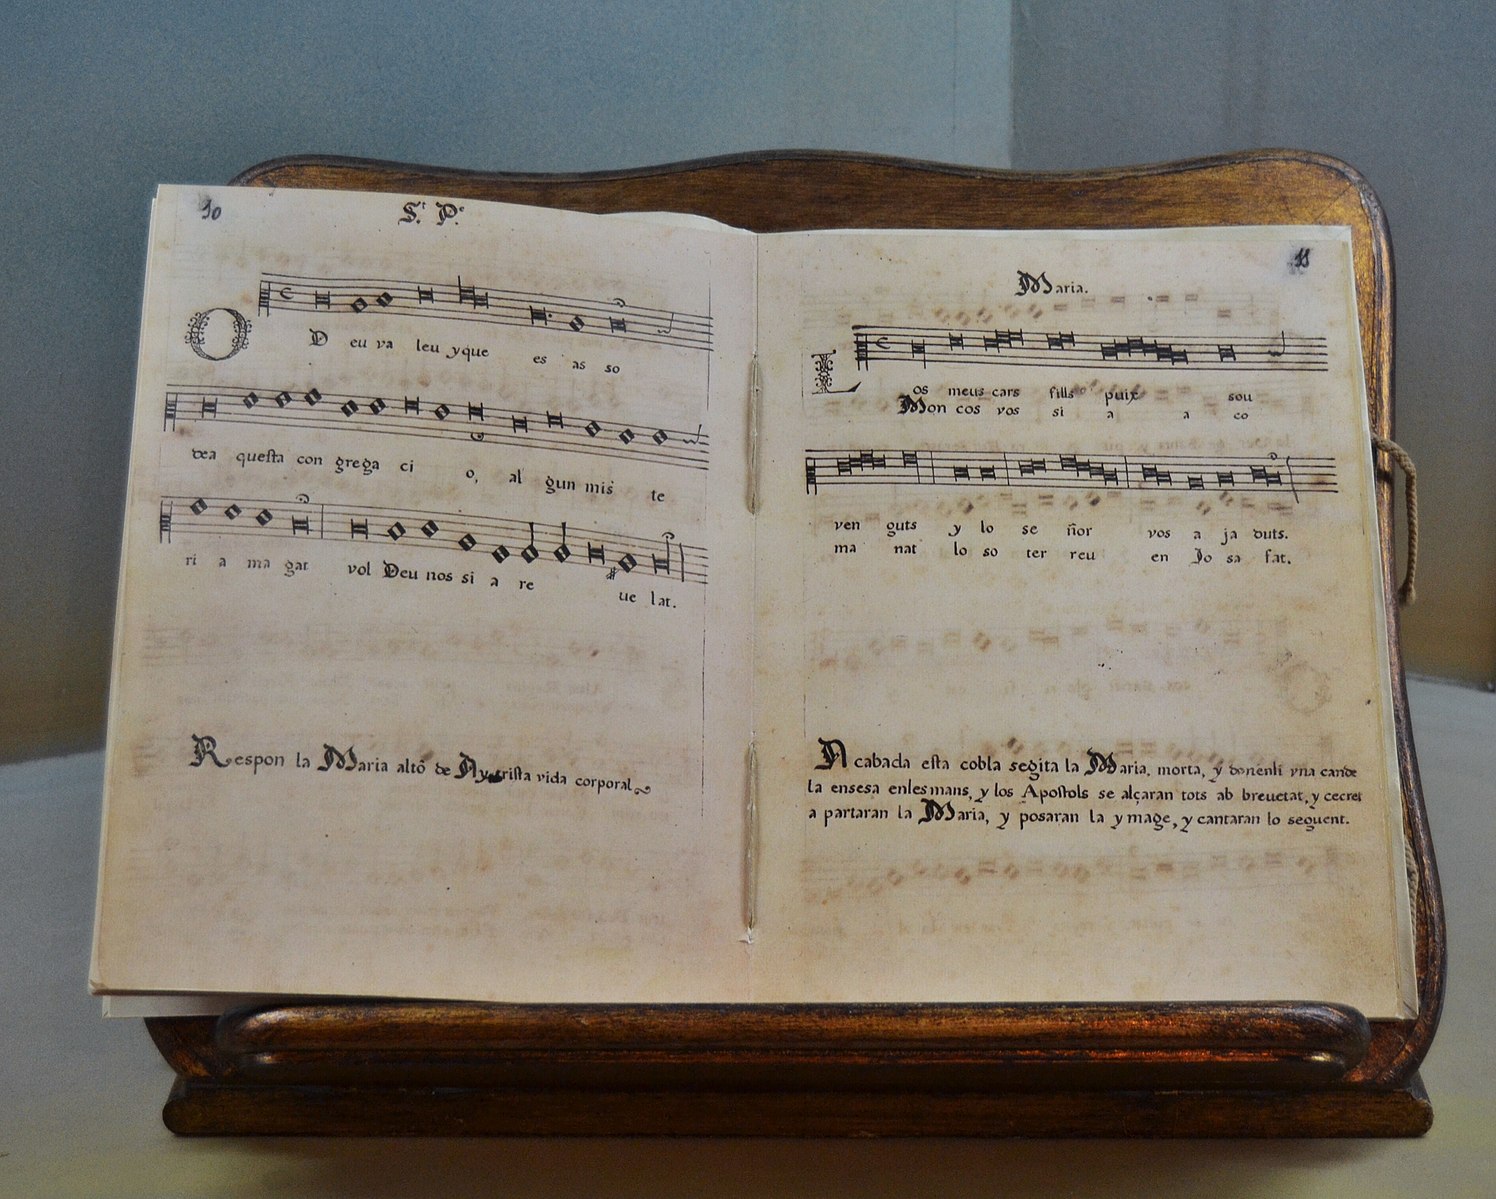 10
S.t P.e
O
O Deu va leu yque es as so
dea questa con grega ci o, al gun mis te
ri a ma gat vol Deu nos si a re ue lat.
Respon la Maria altõ de Ay trista vida corporal
11
Maria.
L
os meus cars fills puix sou
Mon cos vos si a a co
ven guts y lo se ñor vos a ja duts.
ma nat lo so ter reu en Jo sa fat.
Acabada esta cobla segita la Maria, morta, y donenli vna cande
la ensesa enles mans, y los Apostols se alçaran tots ab breuetat, y cecret
a partaran la Maria, y posaran la ymage, y cantaran lo seguent.